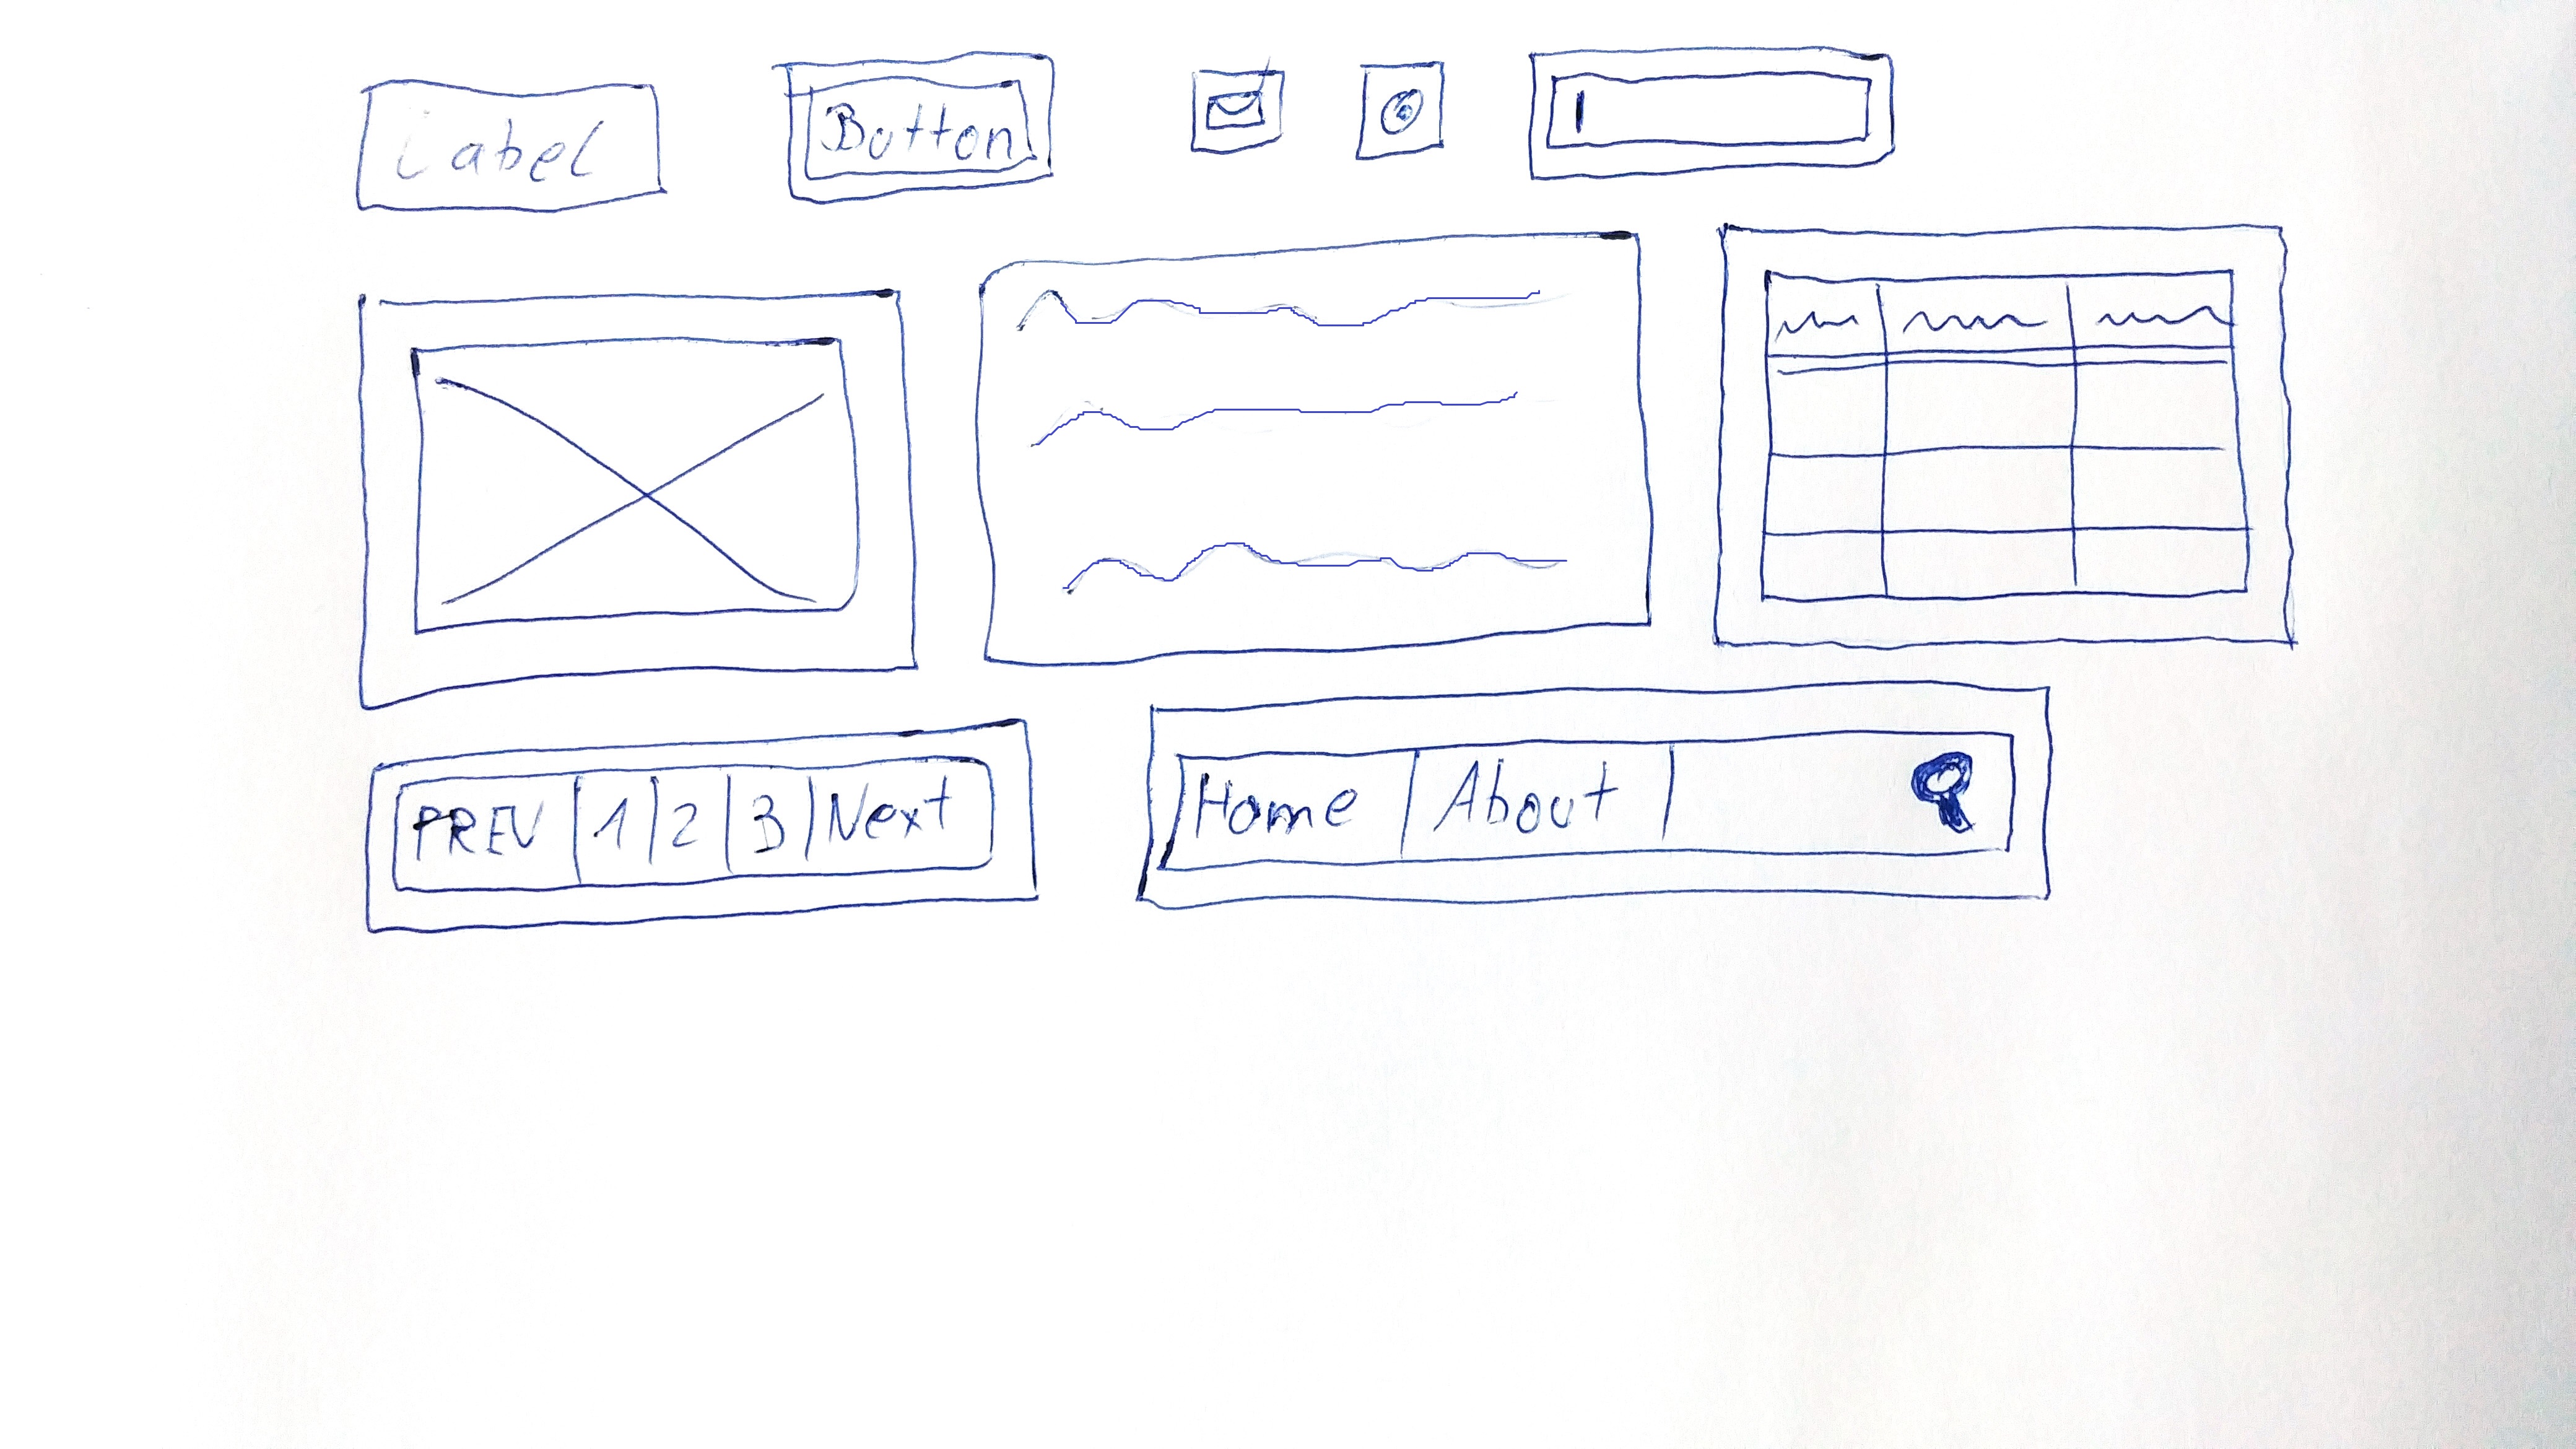 Label
Button
PREV 1 2 3 Next
Home About